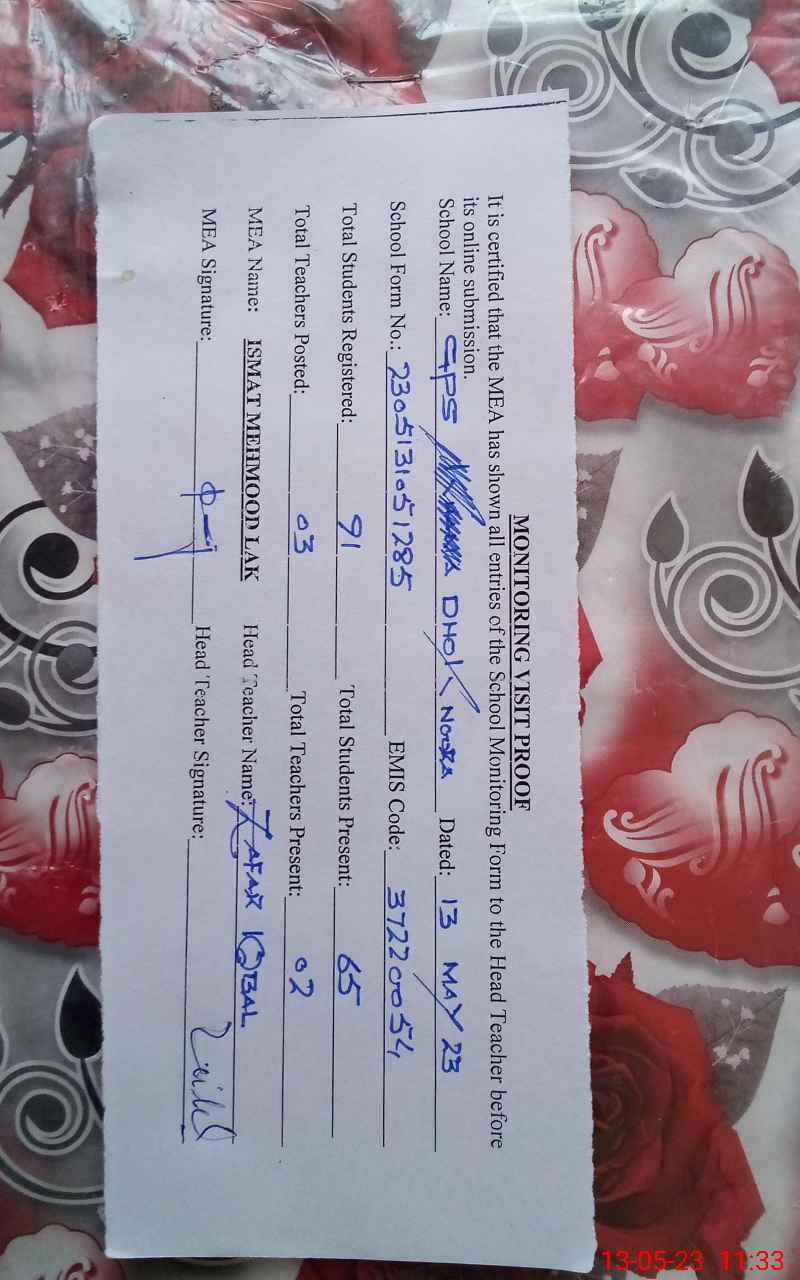 MONITORING VISIT PROOF
It is certified that the MEA has shown all entries of the School Monitoring Form to the Head Teacher before
its online submission.
School Name: GPS DHOK NOORA Dated: 13 MAY 23
School Form No.: 2305131051285 EMIS Code: 37220054
Total Students Registered: 91 Total Students Present: 65
Total Teachers Posted: 03 Total Teachers Present: 02
MEA Name: ISMAT MEHMOOD LAK Head Teacher Name: ZAFAR IQBAL
MEA Signature: Head Teacher Signature:
13-05-23 11:33